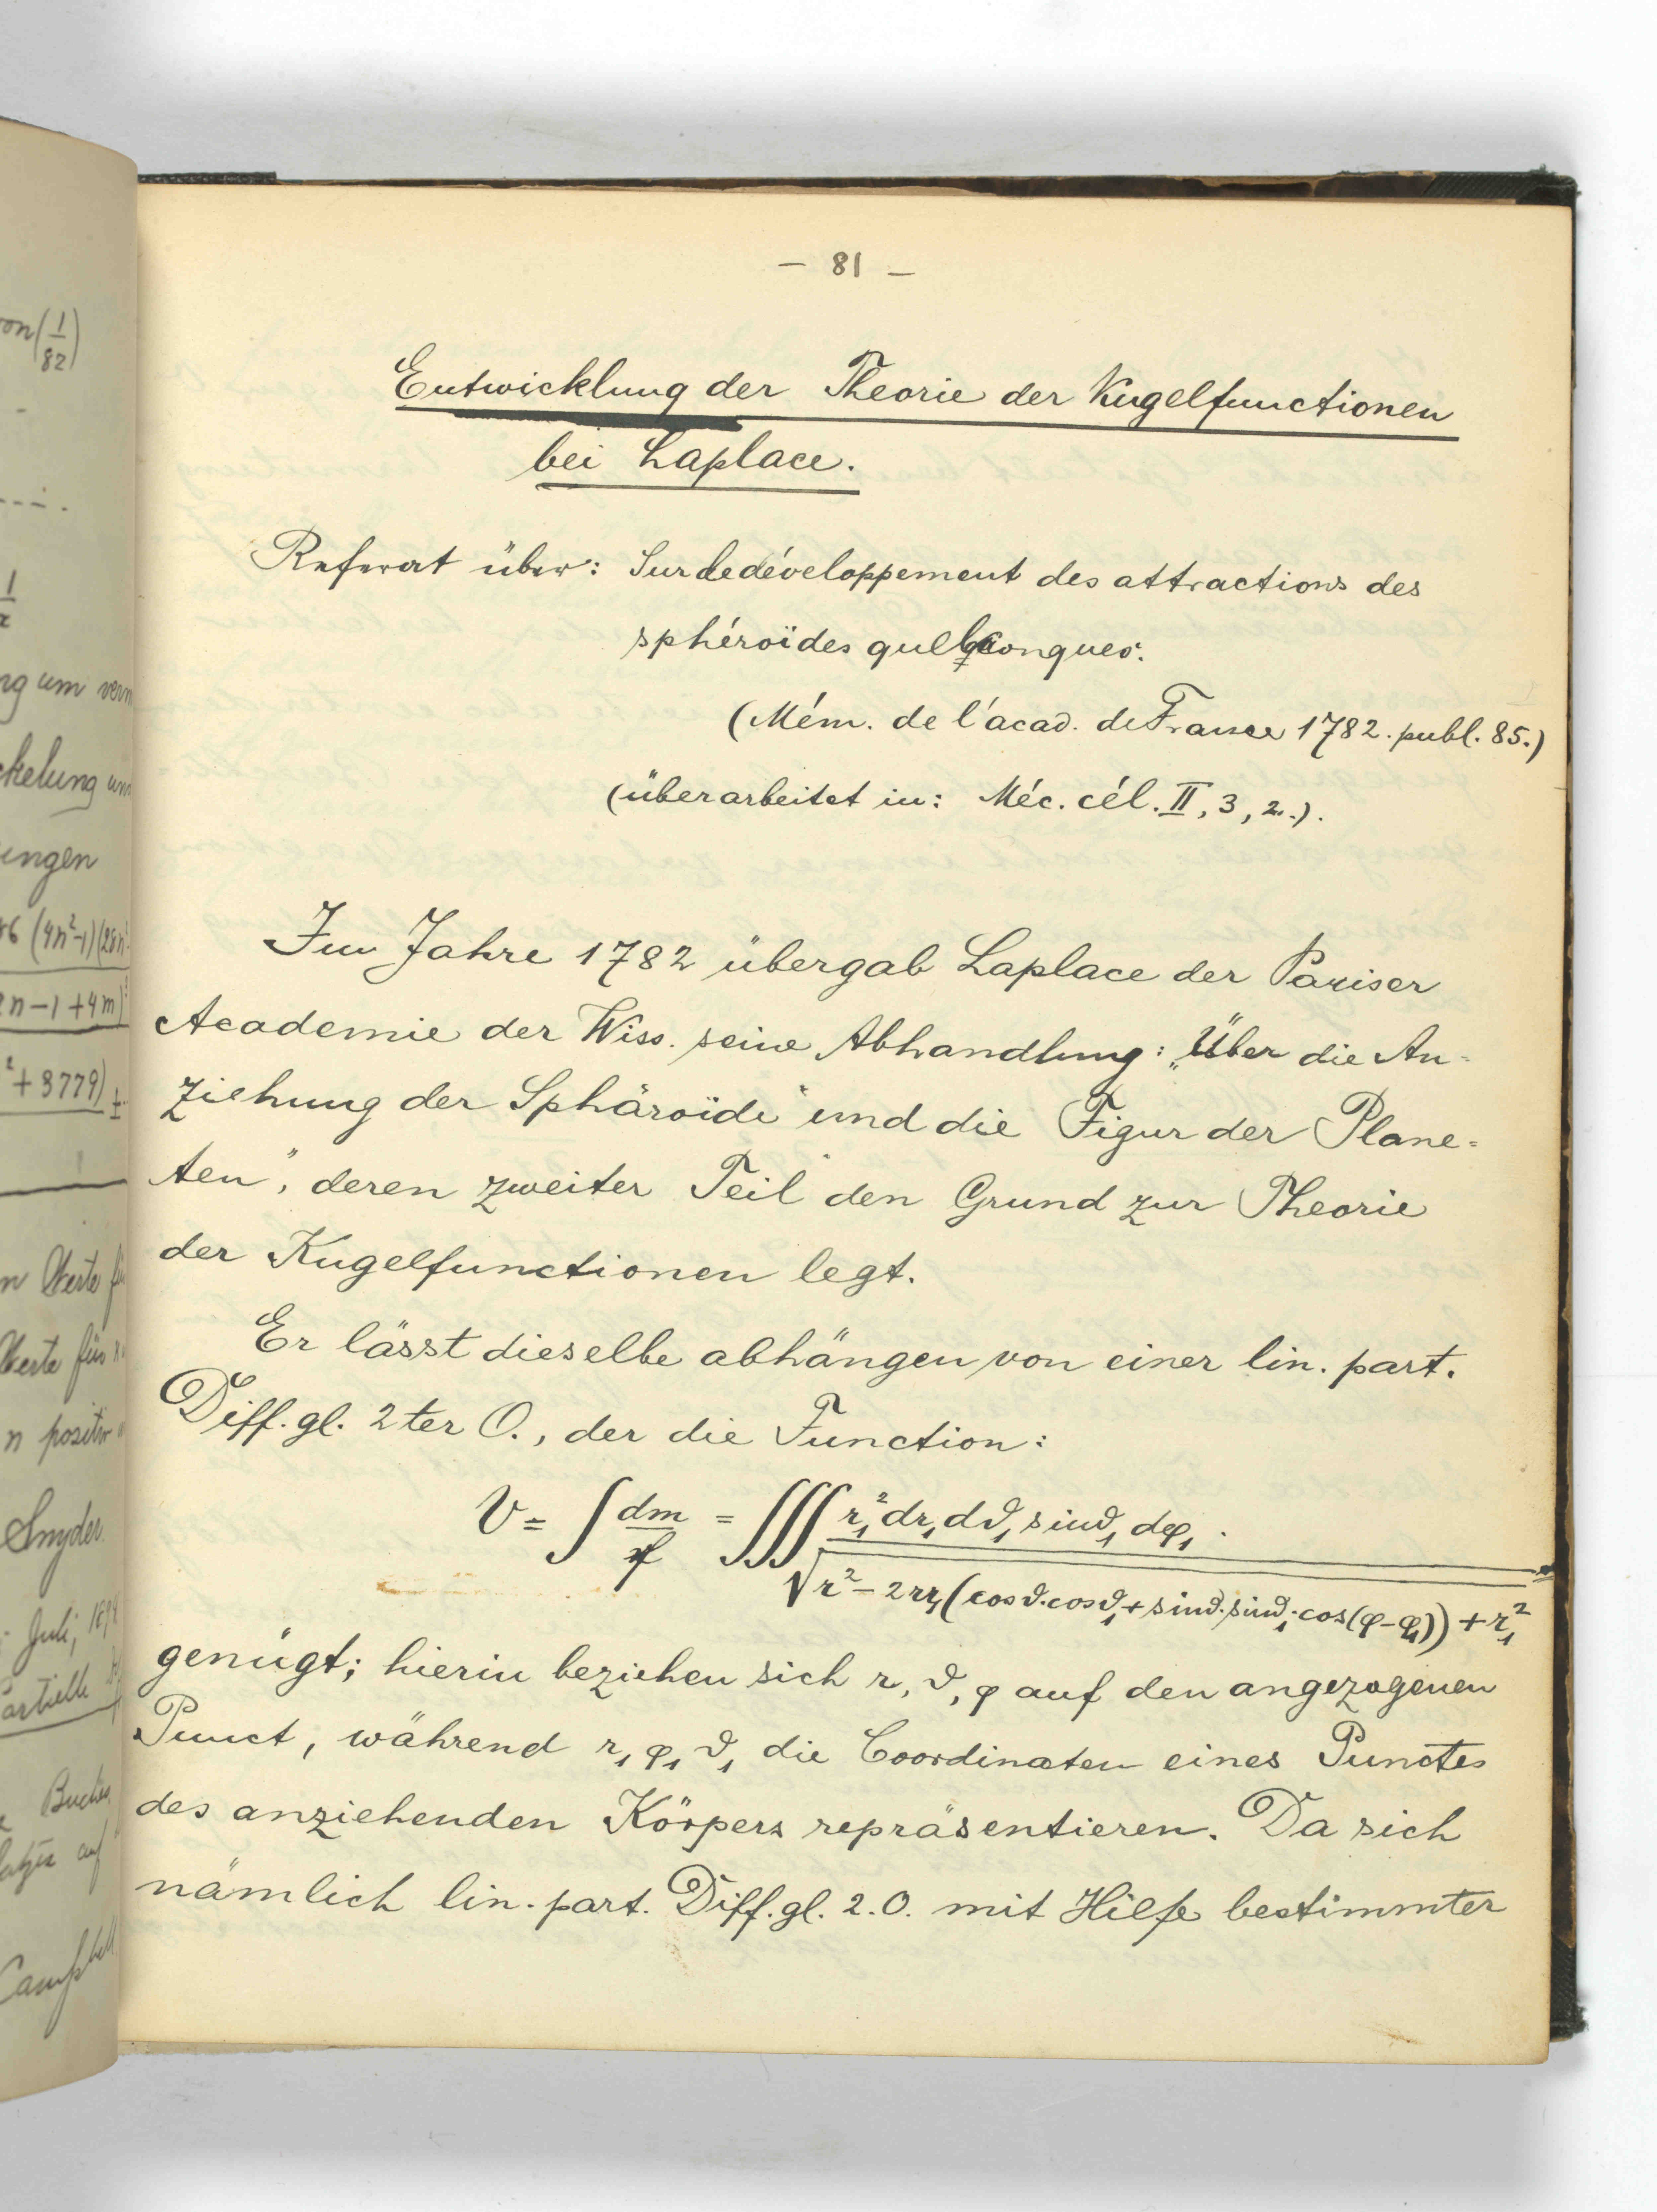 on (1/82)
1/r
ng um
ckelung
ungen
6 (4n²-1)(28n²
n-1+4m)
²+3779) ±
n Werte fü
Werte für
n positiv
Snyder.
Juli, 189
artielle
Buches
auf
Campbell
- 81 -
Entwicklung der Theorie der Kugelfunctionen
bei Laplace.
Referat über: Sur le développement des attractions des
sphéroïdes quelconques.
(Mém. de l'acad. de France 1782. publ. 85.)
(überarbeitet in: Méc. cél. II, 3, 2.).
Im Jahre 1782 übergab Laplace der Pariser
Academie der Wiss. seine Abhandlung: „Über die An=
ziehung der Sphäroïde und die Figur der Plane=
ten", deren zweiter Teil den Grund zur Theorie
der Kugelfunctionen legt.
Er lässt dieselbe abhängen von einer lin. part.
Diff. gl. 2ter O., der die Function:
V = ∫ dm/f = ∫∫∫ r₁² dr₁ dϑ₁ sinϑ₁ dφ₁ / √(r² - 2rr₁(cosϑ·cosϑ₁ + sinϑ·sinϑ₁·cos(φ-φ₁)) + r₁²)
genügt; hierin beziehen sich r, ϑ, φ auf den angezogenen
Punct, während r₁ φ₁ ϑ₁ die Coordinaten eines Punctes
des anziehenden Körpers repräsentieren. Da sich
nämlich lin. part. Diff. gl. 2. O. mit Hilfe bestimmter